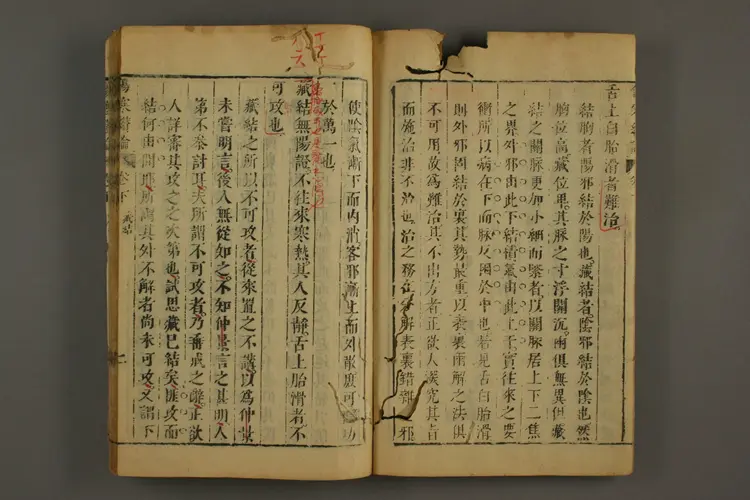 舌上白胎滑者難治
結胸者陽邪結於陽也藏結者陰邪結於陰也然
胸位高藏位卑其脉之寸浮關沉兩俱無異但藏
結之關脉更加小細而緊者以關脉居上下二焦
之界外邪由此下結積氣由此上干實往來之要
衝所以病在下而脉反困於中也若見舌白胎滑
則外邪固結於裏其勢最重以表裏兩解之法俱
不可用故為難治其不出方者正欲人深究其旨
而施治非不治也治之務在解表裏錯雜之邪
使陰氣漸下而内消客邪漸上而外散庶可功
於萬一也
藏結無陽證不往來寒熱其人反靜舌上胎滑者不
可攻也
藏結之所以不可攻者從來置之不講以為仲景
未嘗明言後人無從知之不知仲景言之甚明人
第不參討耳夫所謂不可攻者乃垂戒之辭正欲
人詳審其攻之之次第也試思藏已結矣匪攻而
結何由開耶所謂其外不解者尚未可攻又謂下
傷寒辯論 卷下 藏結